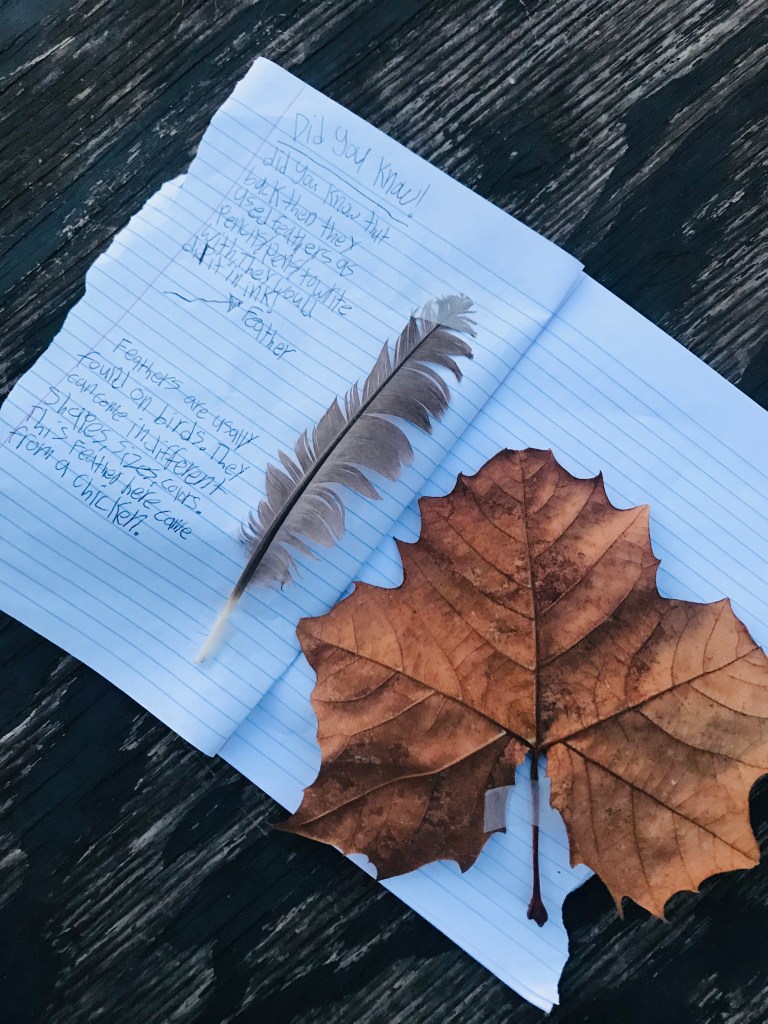 Did You Know!
did you know that
back then they
used feathers as
Pencils/Pens to write
with. They would
dip it in ink!
Feather
Feathers are usally
found on birds. They
can come in different
Shapes, sizes, colors.
This Feather here came
from a chicken.